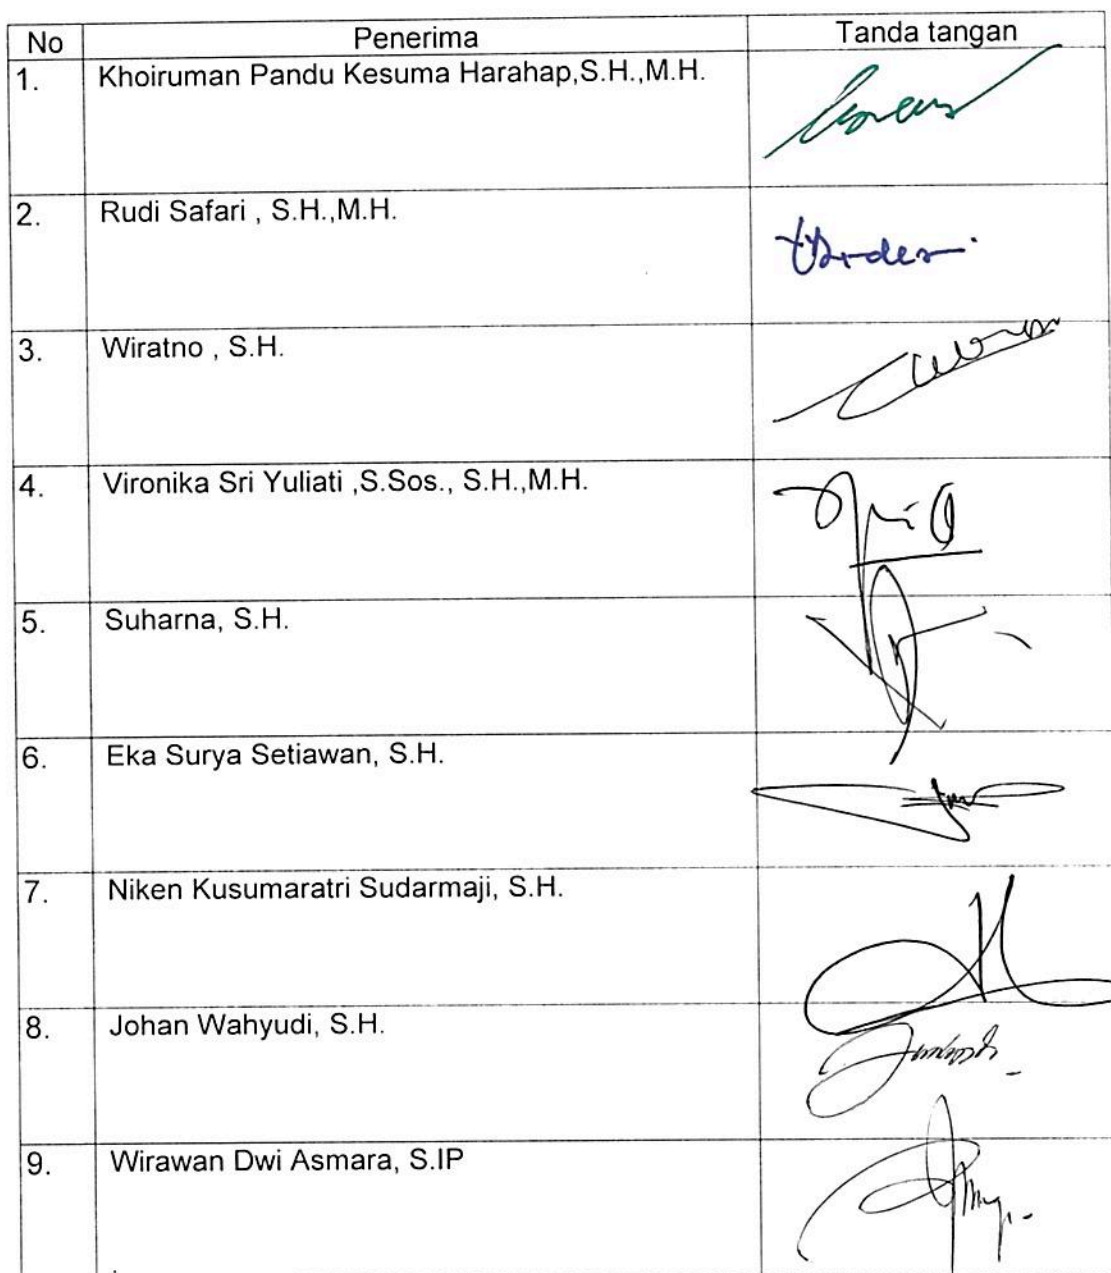 No Penerima Tanda tangan
1. Khoiruman Pandu Kesuma Harahap,S.H.,M.H.
2. Rudi Safari , S.H.,M.H.
3. Wiratno , S.H.
4. Vironika Sri Yuliati ,S.Sos., S.H.,M.H.
5. Suharna, S.H.
6. Eka Surya Setiawan, S.H.
7. Niken Kusumaratri Sudarmaji, S.H.
8. Johan Wahyudi, S.H.
9. Wirawan Dwi Asmara, S.IP